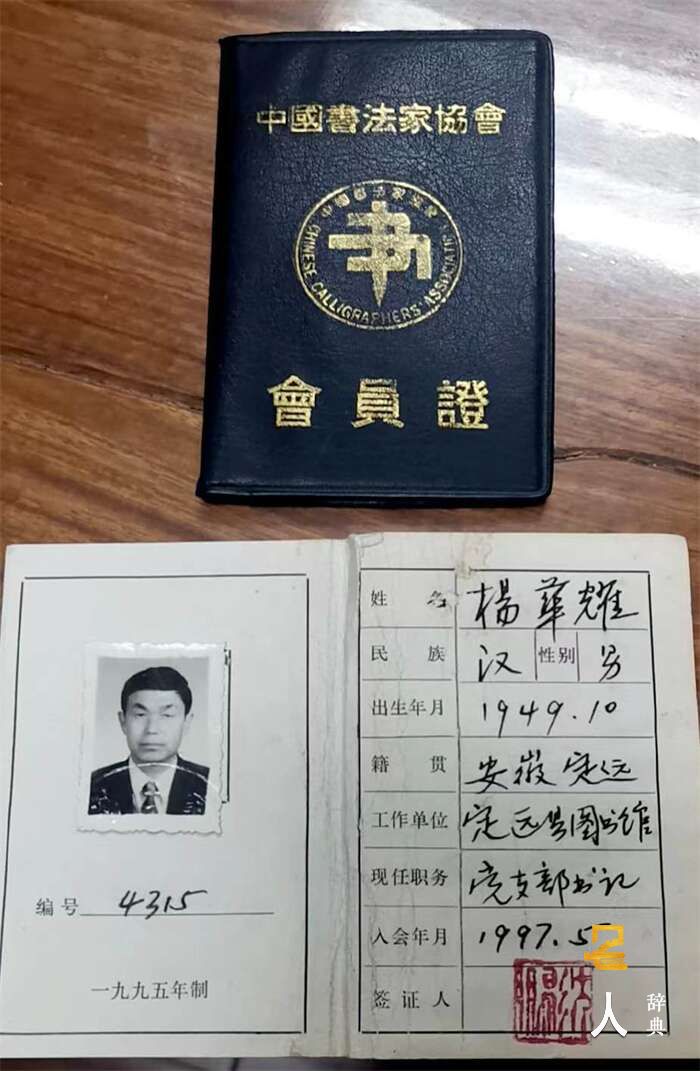 中國書法家協會
中國書法家協會
CHINESE CALLIGRAPHERS' ASSOCIATION
會員證
编号 4315
一九九五年制
姓名 楊華耀
民族 汉 性别 男
出生年月 1949.10
籍贯 安徽定远
工作单位 定远县图书馆
现任职务 党支部书记
入会年月 1997.5
签证人
名人
辞典